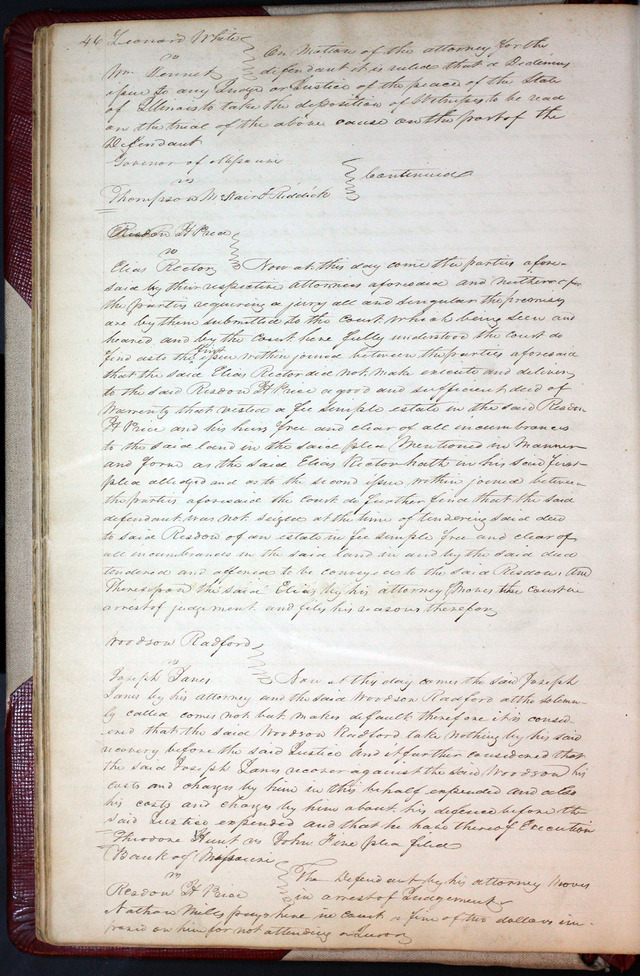 46 Leonard White
vs
Wm Bennet
On Motion of the attorney for the
defendant it is ruled that a Dedimus
issue to any Judge or Justice of the peace of the State
of Illinois to take the deposition of Witnesses to be read
on the trial of the above cause on the part of the
Defendant
Govenor of Missouri
vs
Thompson McNair & Riddick
Continued
Risdon H Price
vs
Elias Rector
Now at this day come the parties afore-
said by their respective attornies aforesaid and neither of
the parties requiring a jury all and singular the premises
are by them submitted to the court which being seen and
heared and by the Court here fully understood the Court do
find as to the first issue within joined between the parties aforesaid
that the said Elias Rector did not make execute and deliver
to the said Risdon H Price a good and sufficient deed of
Warrenty that vested a fee simple estate in the said Risdon
H Price and his heirs free and clear of all incumbrances
to the said land in the said plea Mentioned in Manner
and form as the said Elias Rector hath in his said first
plea alledged and as to the second issue within joined between
the parties aforesaid the court do further find that the said
defendant was not seized at the time of tendering said deed
to said Risdon of an estate in fee simple free and clear of
all incumbrances in the said land in and by the said deed
tendered and offered to be conveyed to the said Risdon And
Thereupon the said Elias by his attorney Moves the court in
arrest of judgement and files his reasons therefor
Woodson Radford
vs
Joseph Janes
Now at this day comes the said Joseph
Janes by his attorney and the said Woodson Radford altho solemn-
ly called comes not but makes default therefore it is consid-
ered that the said Woodson Radford take nothing by his said
recovery before the said Justice And it further considered that
the said Joseph Janes recover against the said Woodson his
costs and charges by him in this behalf expended and also
his costs and charges by him about his defence before the
said Justice expended and that he have thereof Execution
Theodore Hunt vs John Fine plea filed
Bank of Missouri
vs
Risdon H Price
The Defendant by his attorney Moves
in arrest of Judgement
Nathan Mills pays here in court a fine of two dollars im-
posed on him for not attending a Juror